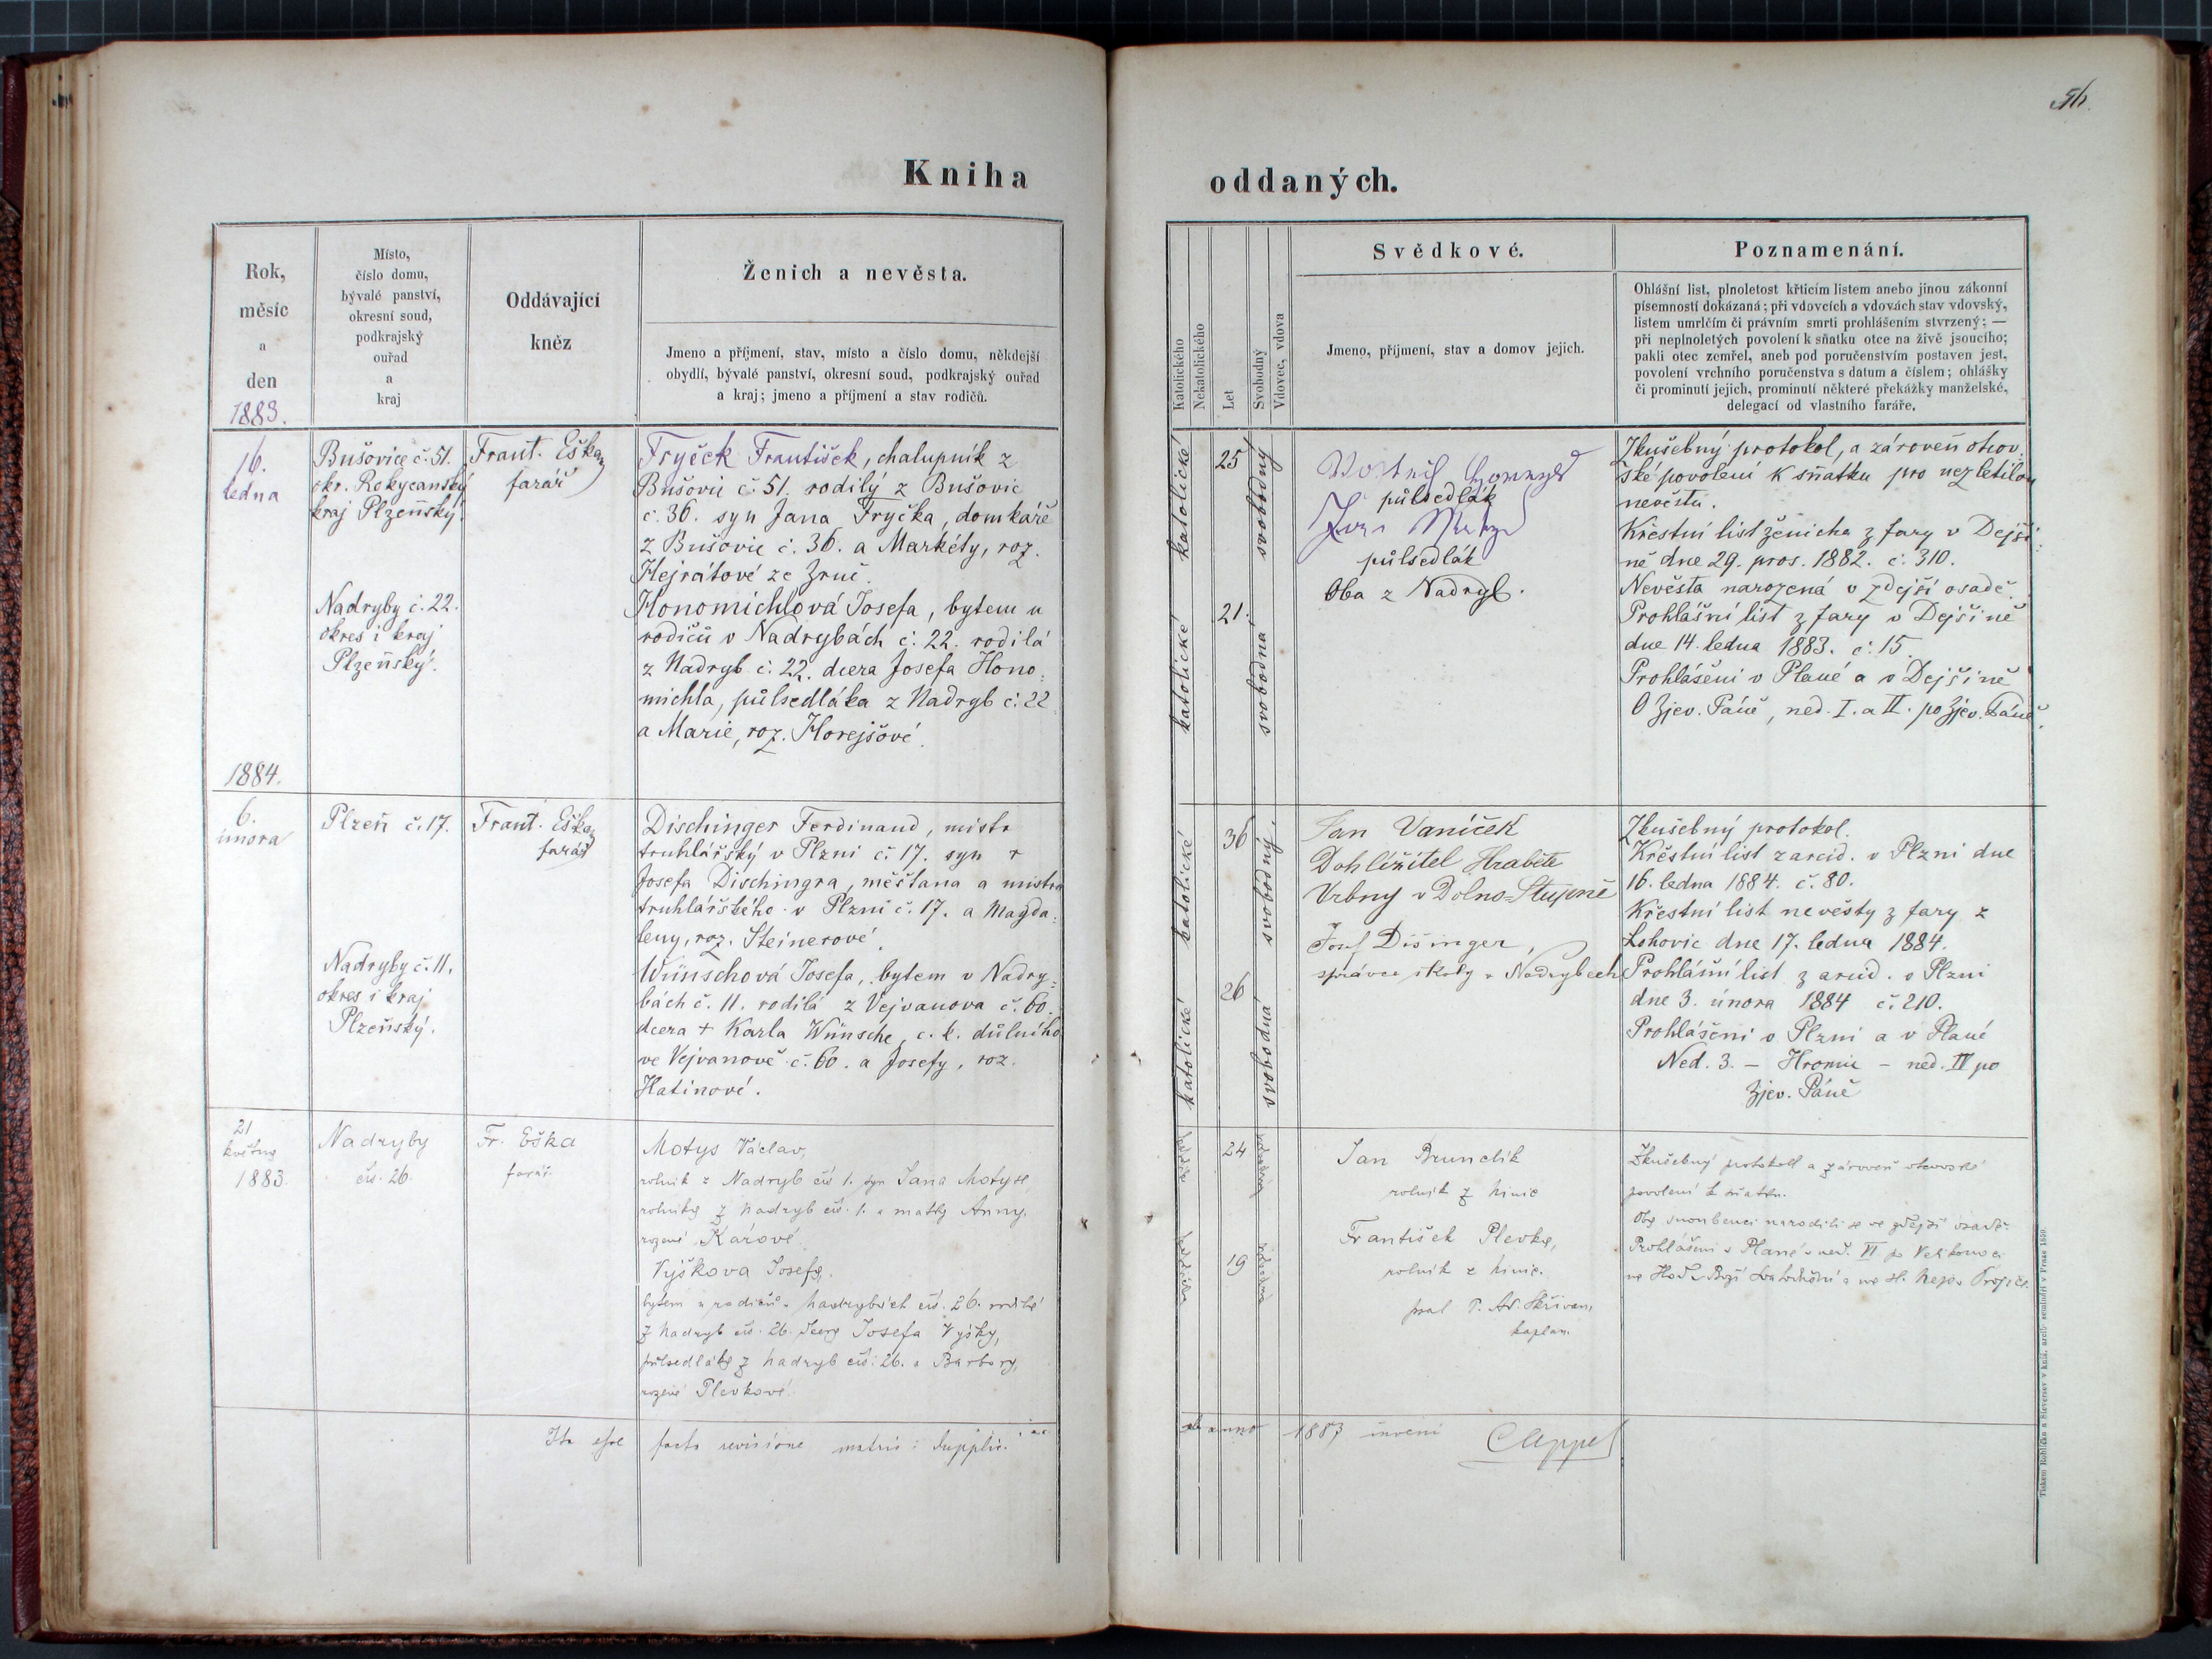 56.
Kniha
oddaných.
Rok,
měsíc
a
den
1883.
Místo,
číslo domu,
bývalé panství,
okresní soud,
podkrajský
ouřad
a
kraj
Oddávající
kněz
Ženich a nevěsta.
Jmeno a příjmení, stav, místo a číslo domu, někdejší
obydlí, bývalé panství, okresní soud, podkrajský ouřad
a kraj; jmeno a příjmení a stav rodičů.
Katolického
Nekatolického
Let
Svobodný
Vdovec, vdova
Svědkové.
Jmeno, příjmení, stav a domov jejich.
Poznamenání.
Ohlášní list, plnoletost křticím listem anebo jinou zákonní
písemností dokázaná; při vdovcích a vdovách stav vdovský,
listem umrlčím či právním smrti prohlášením stvrzený; —
při neplnoletých povolení k sňatku otce na živě jsoucího;
pakli otec zemřel, aneb pod poručenstvím postaven jest,
povolení vrchního poručenstva s datum a číslem; ohlášky
či prominutí jejich, prominutí některé překážky manželské,
delegací od vlastního faráře.
16.
ledna
Bušovice č. 51.
okr. Rokycanský
kraj Plzeňský.
Nadryby č. 22.
okres i kraj
Plzeňský.
Frant. Eška
farář
Fryček František, chalupník z
Bušovic č. 51. rodilý z Bušovic
č. 36. syn Jana Fryčka, domkáře
z Bušovic č. 36. a Markéty, roz.
Hejrátové ze Zruč.
Honomichlová Josefa, bytem u
rodičů v Nadrybách č. 22. rodilá
z Nadryb č. 22. dcera Josefa Hono-
michla, půlsedláka z Nadryb č. 22
a Marie, roz. Horejšové.
katolické
katolické
25
21.
svobodný
svobodná
půlsedlák
půlsedlák
Oba z Nadryb.
Zkušebný protokol, a zároveň otcov-
ské povolení k sňatku pro nezletilou
nevěstu.
Křestní list ženicha z fary v Dejši-
ně dne 29. pros. 1882. č. 310.
Nevěsta narozená v zdejší osadě.
Prohlášní list z fary v Dejšině
dne 14. ledna 1883. č. 15.
Prohlášeni v Plané a v Dejšině
O Zjev. Páně, ned. I. a II. po Zjev. Páně.
1884.
6.
února
Plzeň č. 17.
Nadryby č. 11.
okres i kraj
Plzeňský.
Frant. Eška
farář
Dischinger Ferdinand, mistr
truhlářský v Plzni č. 17. syn
Josefa Dischingra, měšťana a mistra
truhlářského v Plzni č. 17. a Magda-
leny, roz. Steinerové.
Wünschová Josefa, bytem v Nadry-
bách č. 11. rodilá z Vejvanova č. 60.
dcera + Karla Wünsche, c. k. důlního
ve Vejvanově č. 60. a Josefy, roz.
Hatinové.
katolické
katolické
36
26
svobodný.
svobodná
Jan Vaníček
Dohlížitel Hraběte
Vrbny v Dolno-Stupně
Josef Dišinger,
správce školy v Nadrybech
Zkušebný protokol.
Křestní list z arcid. v Plzni dne
16. ledna 1884. č. 80.
Křestní list nevěsty z fary z
Lohovic dne 17. ledna 1884.
Prohlášní list z arcid. v Plzni
dne 3. února 1884 č. 210.
Prohlášeni v Plzni a v Plané
Ned. 3. — Hromic — ned. IV po
Zjev. Páně
21
května
1883.
Nadryby
čís. 26.
Fr. Eška
farář.
Motys Václav,
rolník z Nadryb čís 1. syn Jana Motyse
rolníka z Nadryb čís. 1. a matky Anny,
rozené Kárové.
Výškova Josefa,
bytem u rodičů v Nadrybách čís. 26. rodilá
z Nadryb čís. 26. dcera Josefa Výšky,
půlsedláka z Nadryb čís. 26. a Barbory,
rozené Plevkové.
24
19
Jan Brunclík
rolník z
František Plevka,
rolník z
psal P. Ad. Skřivan,
kaplan.
Zkušebný protokoll a zároveň otcovské
povolení k sňatku.
Oba snoubenci narodili se ve zdejší osadě.
Prohlášeni v Plané v ned. VI po Velikonoci
na Hod Boží Svatodušní a na sl. Nejsv. Trojice.
Ita esse facta revisione matric: supplic.
ab anno 1883 inveni CAppel
Tiskem Rohlíčka a Sieversev v kníž. arcib. semináři v Praze 1859.